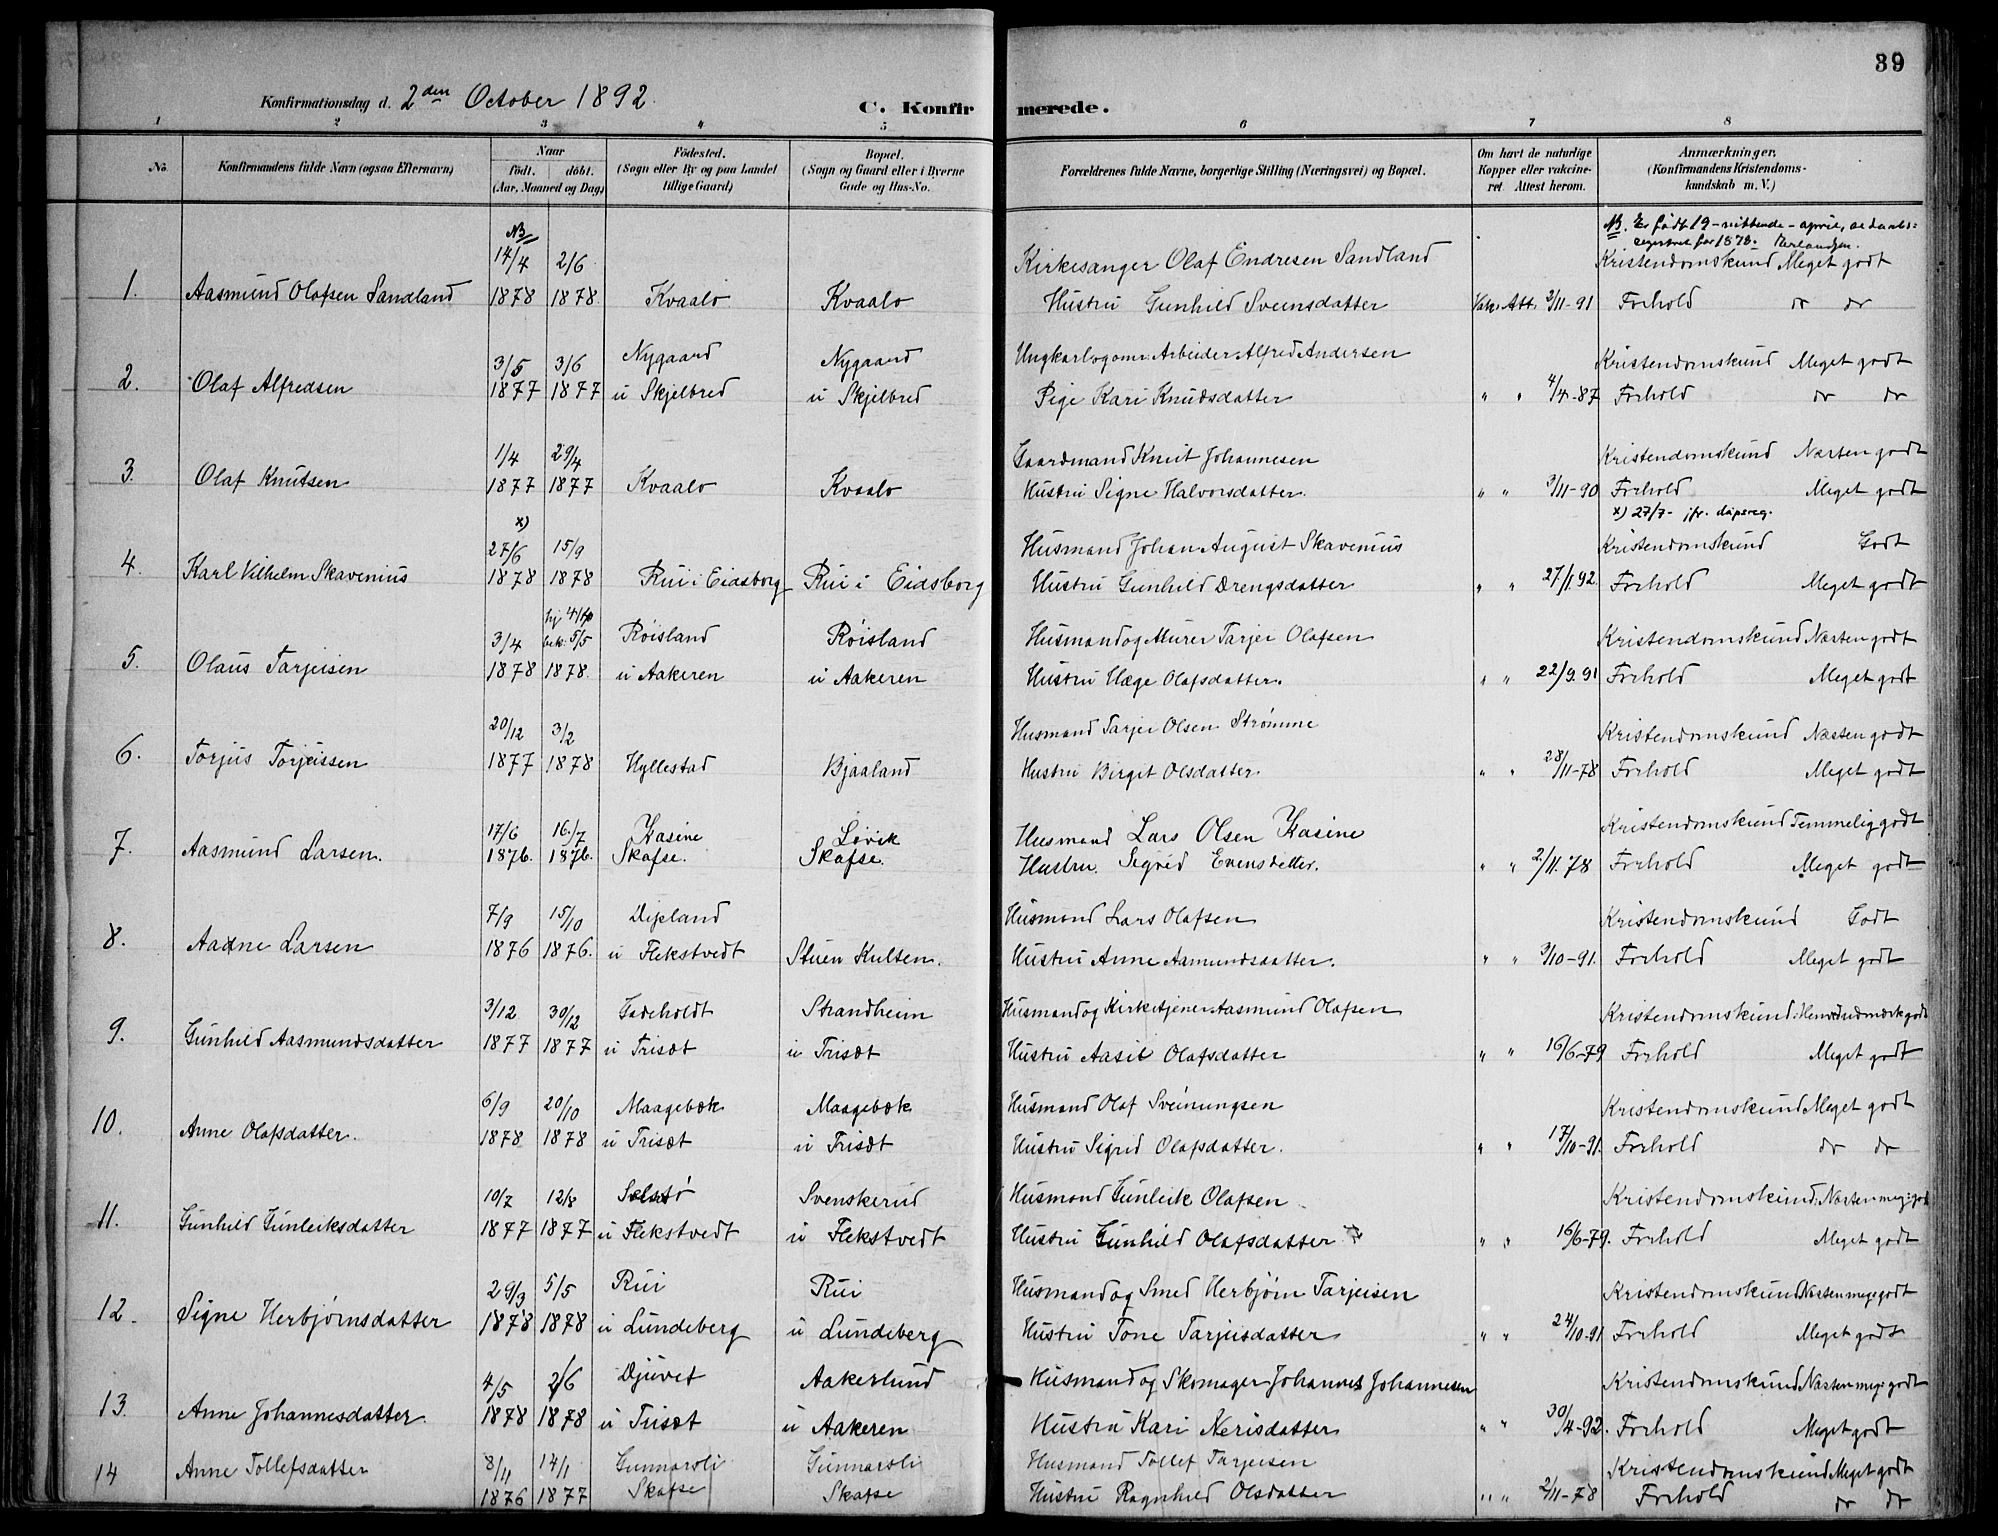 39
Konfirmationsdag d. 2den October 1892.
C. Konfirmerede.
1 2 3 4 5 6 7 8
No. Konfirmandens fulde Navn (ogsaa Efternavn) Naar födt. döbt. (Aar, Maaned og Dag) Födested. (Sogn eller By og paa Landet tillige Gaard) Bopæl. (Sogn og Gaard eller i Byerne Gade og Hus-No. Forældrenes fulde Navne, borgerlige Stilling (Næringsvei) og Bopæl. Om havt de naturlige Kopper eller vakcineret Attest herom. Anmærkninger. (Konfirmandens Kristendomskundskab m. V.)
NB NB. Er født 19 - nittende - april, se daabsregistret for 1878.
14/4 2/6 Kirkesanger Olaf Endresen Sandland Kristendomskund Meget godt
1. Aasmund Olafsen Sandland 1878 1878 Kvaalo Kvaalo Hustru Gunhild Sveinsdatter Vak. Att. 2/11-91 Forhold do do
3/5 3/6 Nygaard Nygaard Ungkarl og om. Arbeider Alfred Andersen Kristendomskund Meget godt
2. Olaf Alfredsen 1877 1877 u Skjelbred u Skjelbred Pige Kari Knudsdatter " " 4/4-87 Forhold do do
1/4 29/4 Gaardmand Knut Johannesen Kristendomskund Næsten godt
3. Olaf Knutsen 1877 1877 Kvaalo Kvaalo Hustru Signe Halvorsdatter. " " 3/11-90 Forhold Meget godt
x) x) 27/7 - jfr. dåpsreg.
27/6 15/9 Husmand Johan August Skavenius Kristendomskund Godt
4. Karl Vilhelm Skavenius 1878 1878 Rui i Eidsborg Rui i Eidsborg Hustru Gunhild Drengsdatter " " 27/1 92. Forhold Meget godt
3/4 bek. 5/5 Røisland Røisland Husmand og Murer Tarjei Olafsen Kristendomskund Næsten godt
5. Olaus Tarjeisen 1878 1878. u Aakeren u Aakeren Hustru Hæge Olafsdatter. " " 22/9 91 Forhold Meget godt
20/12 3/2 Husmand Tarjei Olsen Strømme Kristendomskund Næsten godt
6. Torjus Torjeissen 1877 1878 Hyllestad Bjaaland Hustru Birgit Olsdatter. " " 28/11-78 Forhold Meget godt
17/6 16/7 Kasine Løvik Husmand Lars Olsen Kasine Kristendomskund Temmelig godt
7. Aasmund Larsen. 1876. 1876. Skafse. Skafse. Hustru. Sigrid Evensdatter. " " 2/11.78 Forhold Meget godt
7/9 15/10 Dipland Husmand Lars Olafsen Kristendomskund Godt
8. Aadne Larsen 1876 1876. u Flekstvedt Stuen Kulten. Hustru Anne Aamundsdatter. " " 3/10-91. Forhold Meget godt
3/12 30/12 Gadeholdt Strandheim Husmand og Kirketjener Aasmund Olafsen Kristendomskund:
9. Gunhild Aasmundsdatter 1877 1877 u Trisæt u Trisæt Hustru Aasil Olafsdatter " " 16/6-79 Forhold Meget godt
6/9 20/10 Maagebæk Maagebæk Husmand Olaf Sveinungsen Kristendomskund Meget godt
10. Anne Olafsdatter. 1878 1878 u Trisæt u Trisæt Hustru Sigrid Olafsdatter. " " 17/10-91. Forhold do do
10/7 12/8 Selstø Svenskerud Husmand Gunleik Olafsen Kristendomskund: Næsten meg: godt
11. Gunhild Gunleiksdatter 1877 1877 u Flekstvedt u Flekstvedt Hustru Gunhild Olafsdatter " " 16/6-79. Forhold Meget godt
29/3 5/5 Rui Rui Husmand og Smed Herbjørn Tarjeisen Kristendomskund Næsten meget godt
12. Signe Herbjørnsdatter 1878 1878 u Lundeberg u Lundeberg Hustru Tone Tarjeisdatter " " 24/10-91 Forhold Meget godt
4/5 2/6 Djuvet Aakerlund Husmand og Skomager Johannes Johannesen Kristendomskund Næsten meg: godt
13. Anne Johannesdatter 1878 1878 u Trisæt u Aakeren Hustru Kari Nerisdatter " " 30/4-92. Forhold Meget godt
8/11 14/1 Gunnarsli Gunnarsli Husmand Tollef Tarjeisen Kristendomskund Meget godt
14 Anne Tollefsdatter 1876 1877 Skafse Skafse Hustru Ragnhild Olsdatter " " 2/11-78 Forhold do do